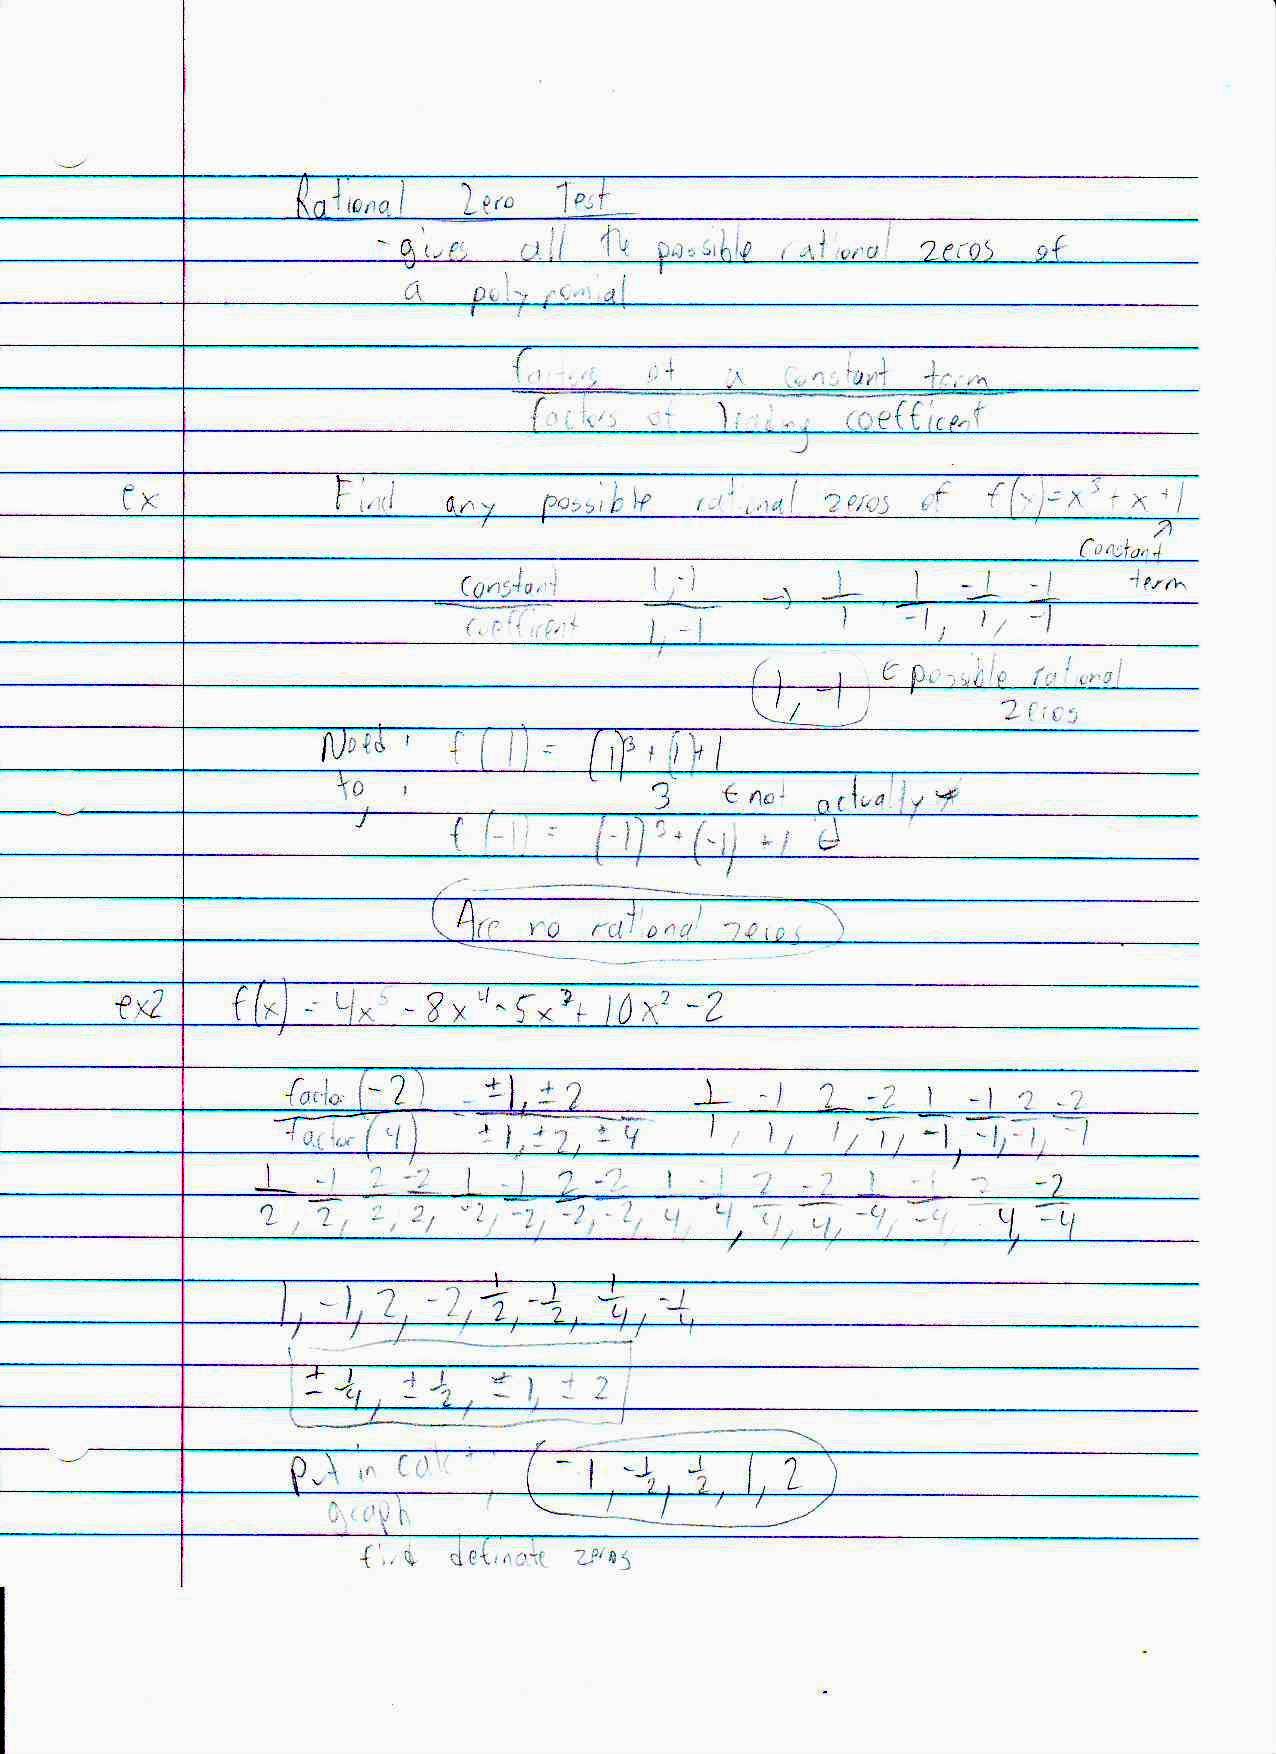 Rational Zero Test
- gives all the possible rational zeros of
a polynomial
factors of a constant term
factors of leading coefficent
ex Find any possible rational zeros of f(x)=x³+x+1
Constant
term
constant 1,-1 → 1 1 -1 -1
coefficent 1,-1 1, -1, 1, -1
1, -1 ← possible rational
zeros
f(1) = (1)³+(1)+1
to, 3 ← not actually
f(-1) = (-1)³+(-1)+1
Are no rational zeros
ex2 f(x) = 4x⁵ - 8x⁴ - 5x³ + 10x² - 2
factor(-2) = ±1, ±2 1 -1 2 -2 1 -1 2 -2
factor(4) ±1, ±2, ±4 1, 1, 1, 1, -1, -1, -1, -1
1 -1 2 -2 1 -1 2 -2 1 -1 2 -2 1 -1 2 -2
2, 2, 2, 2, -2, -2, -2, -2, 4, 4, 4, 4, -4, -4, 4, -4
1, -1, 2, -2, 1/2, -1/2, 1/4, -1/4
±1/4, ±1/2, ±1, ±2
put in calc + -1, -1/2, 1/2, 1, 2
graph
find definate zeros